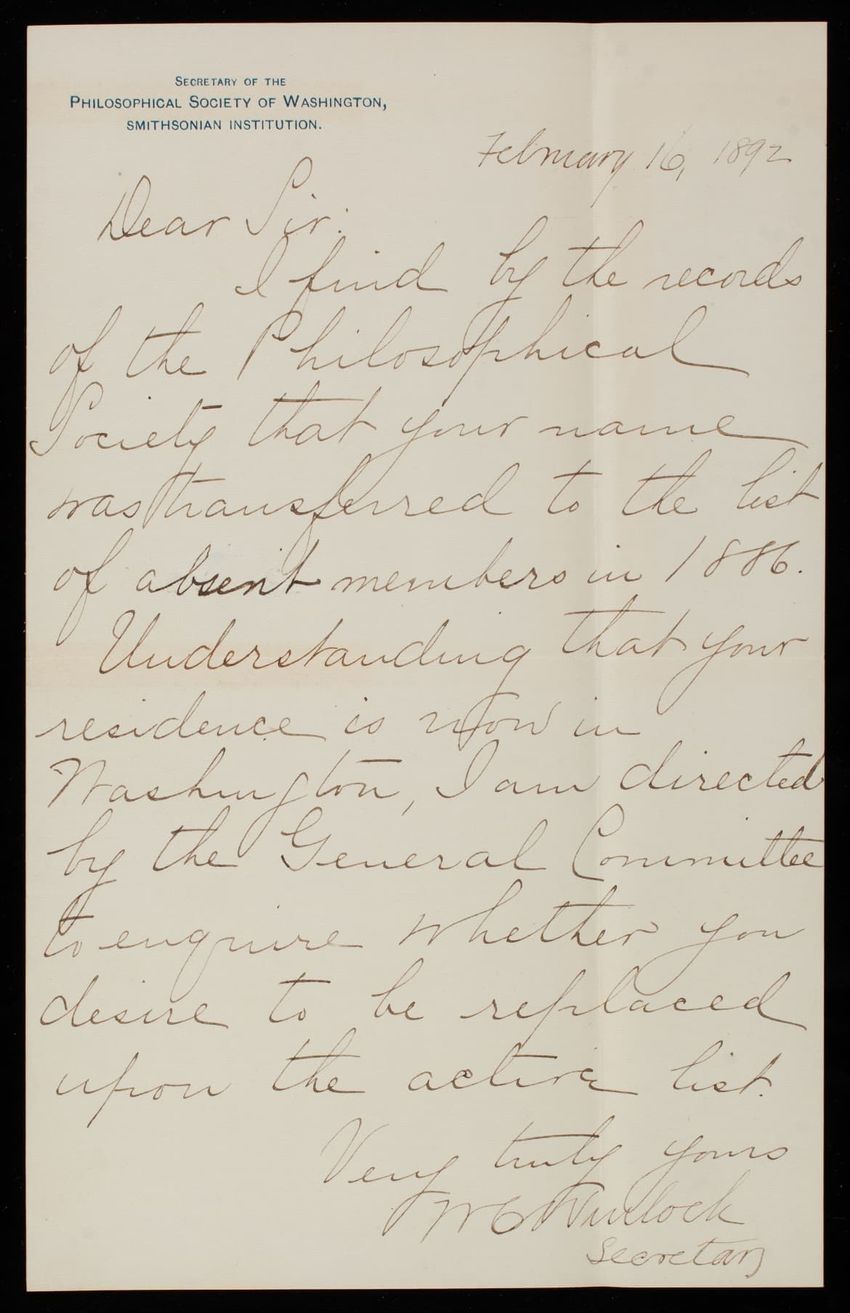 SECRETARY OF THE
PHILOSOPHICAL SOCIETY OF WASHINGTON,
SMITHSONIAN INSTITUTION.
February 16, 1892
Dear Sir:
I find by the records
of the Philosophical
Society that your name
was transferred to the list
of absent members in 1886.
Understanding that your
residence is now in
Washington, I am directed
by the General Committee
to enquire whether you
desire to be replaced
upon the active list.
Very truly yours
W C Winlock
Secretary